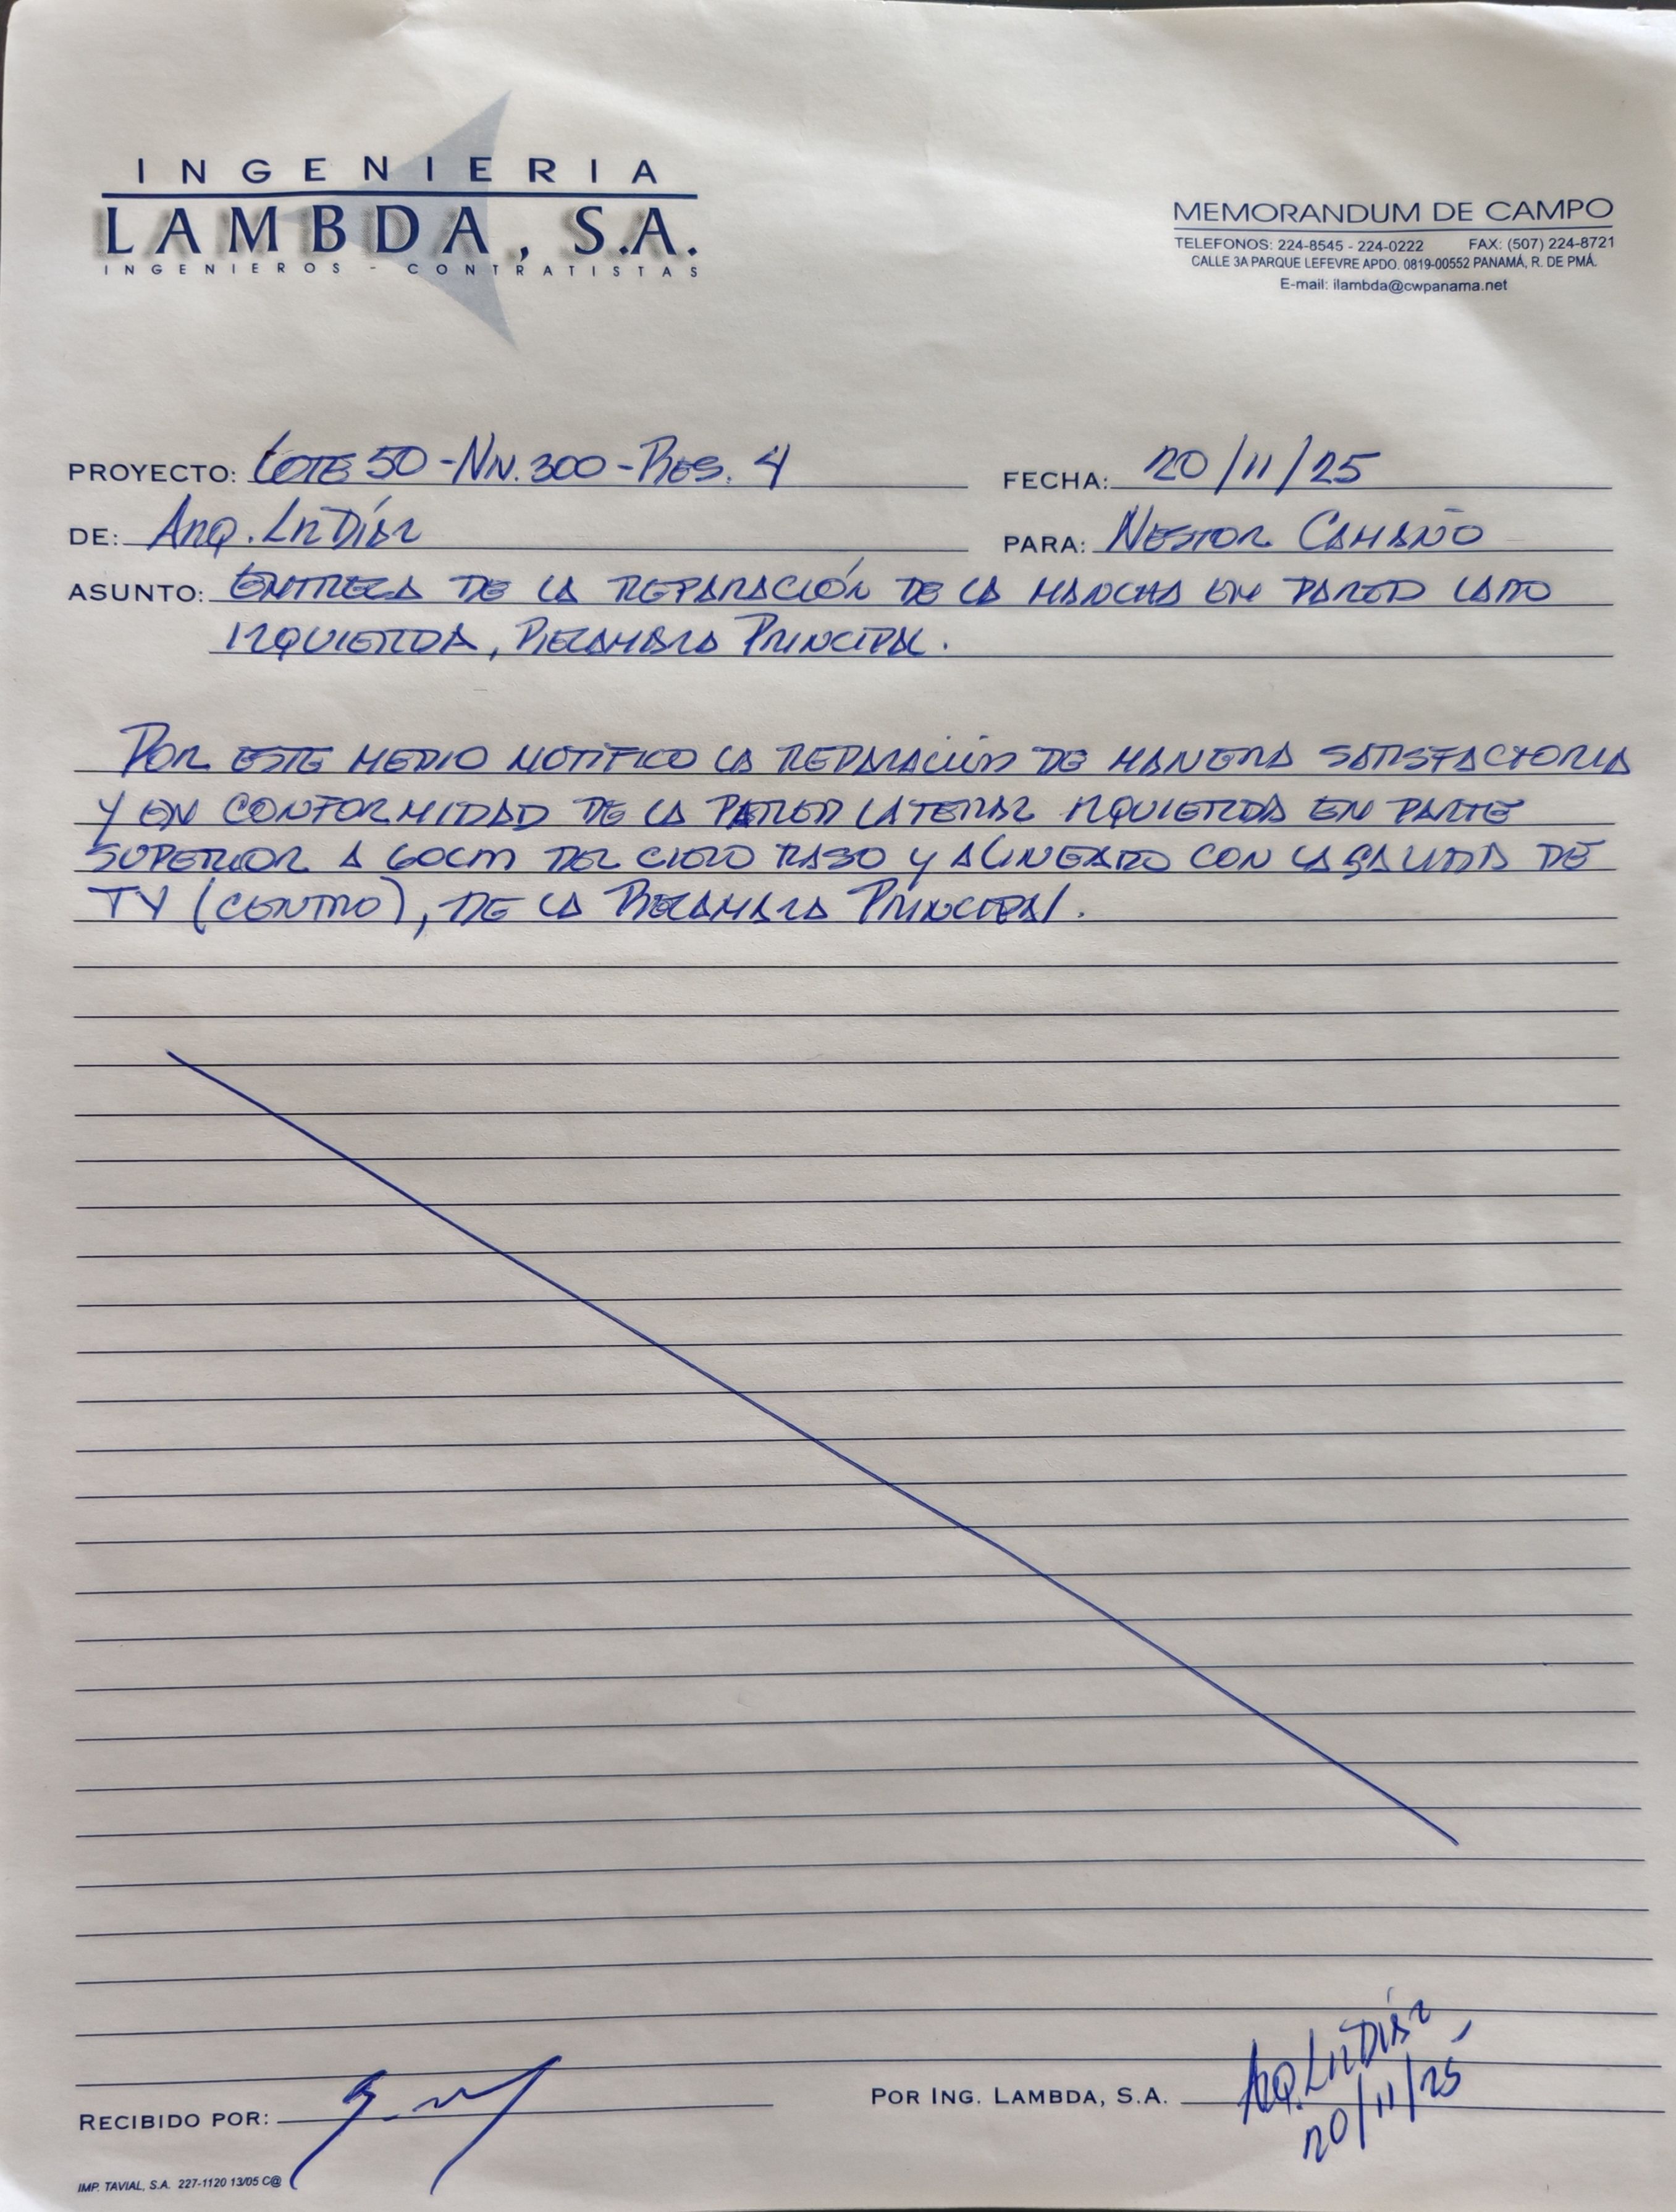 INGENIERIA
LAMBDA, S.A.
INGENIEROS - CONTRATISTAS
MEMORANDUM DE CAMPO
TELEFONOS: 224-8545 - 224-0222 FAX: (507) 224-8721
CALLE 3A PARQUE LEFEVRE APDO. 0819-00552 PANAMÁ, R. DE PMÁ.
E-mail: ilambda@cwpanama.net
PROYECTO: LOTE 50 - NN. 300 - RES. 4 FECHA: 20/11/25
DE: ARQ. Díaz PARA: NESTOR CAMAÑO
ASUNTO: ENTREGA DE LA REPARACIÓN DE LA MANCHA EN PARED LADO
IZQUIERDA, RECAMARA PRINCIPAL.
POR ESTE MEDIO NOTIFICO LA REPARACIÓN DE MANERA SATISFACTORIA
Y EN CONFORMIDAD DE LA PARED LATERAL IZQUIERDA EN PARTE
SUPERIOR A 60CM DEL CIELO RASO Y ALINEADO CON LA SALIDA DE
TV (CENTRO), DE LA RECAMARA PRINCIPAL.
RECIBIDO POR:
POR ING. LAMBDA, S.A. ARQ. Díaz
20/11/25
IMP. TAVIAL, S.A. 227-1120 13/05 C@